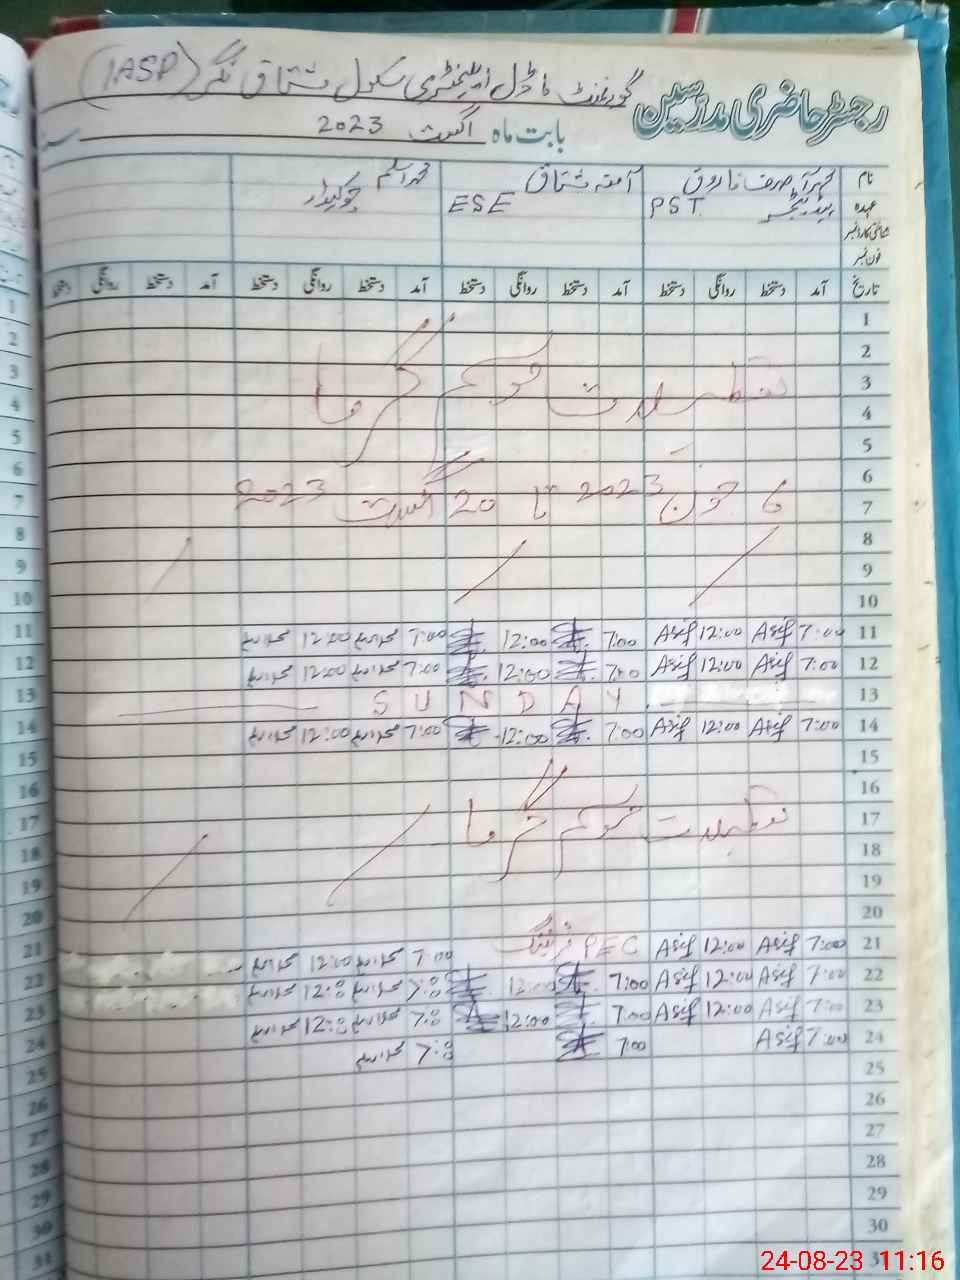 رجسٹر حاضری مدرسین
گورنمنٹ ماڈل ایلیمنٹری سکول مشتاق نگر (IASP)
بابت ماہ اگست 2023
نام مہر آصف فاروق آمنہ مشتاق محمد اسلم
عہدہ ہیڈ ٹیچر PST ESE چوکیدار
شناختی کارڈ نمبر
فون نمبر
تاریخ آمد دستخط روانگی دستخط آمد دستخط روانگی دستخط آمد دستخط روانگی دستخط آمد دستخط روانگی دستخط
1
2
3 تعطیلات موسم گرما
4
5
6
7 6 جون 2023 تا 20 اگست 2023
8
9
10
11 7:00 Asif 12:00 Asif 7:00 12:00 7:00 محمد اسلم 12:00 محمد اسلم
12 7:00 Asif 12:00 Asif 7:00 12:00 7:00 محمد اسلم 12:00 محمد اسلم
13 SUNDAY
14 7:00 Asif 12:00 Asif 7:00 12:00 7:00 محمد اسلم 12:00 محمد اسلم
15
16
17 تعطیلات موسم گرما
18
19
20
21 7:00 Asif 12:00 Asif PEC ٹریننگ 7:00 محمد اسلم 12:00 محمد اسلم
22 7:00 Asif 12:00 Asif 7:00 12:00 7:00 محمد اسلم 12:00 محمد اسلم
23 7:00 Asif 12:00 Asif 7:00 12:00 7:00 محمد اسلم 12:00 محمد اسلم
24 7:00 Asif 7:00 7:00 محمد اسلم
25
26
27
28
29
30
31
24-08-23 11:16